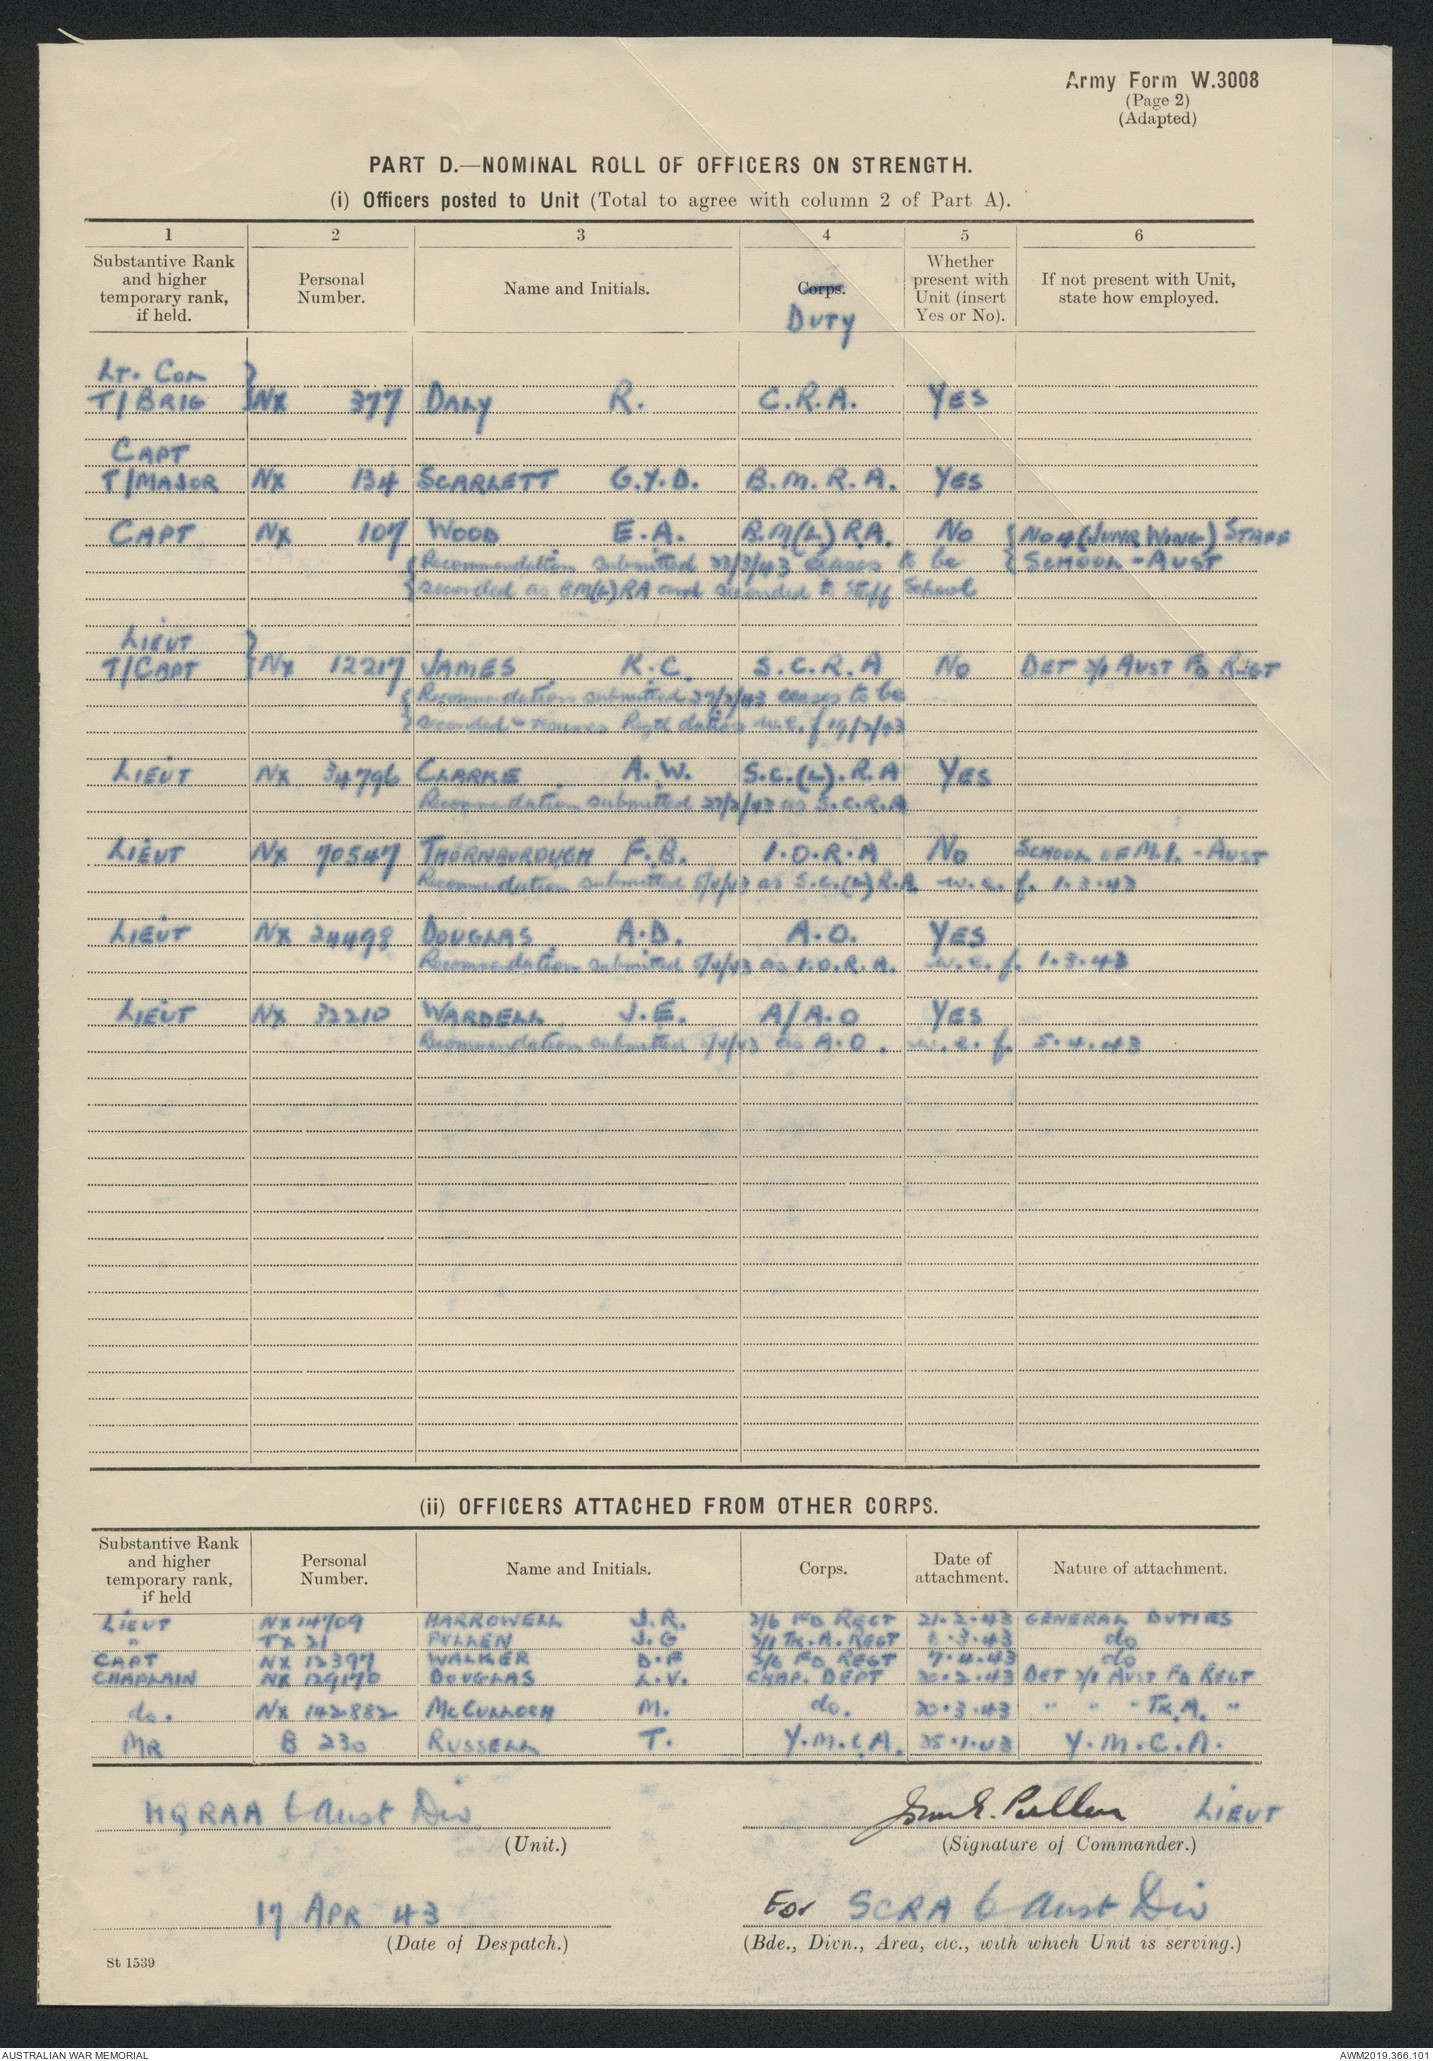 Army Form W.3008
(Page 2)
(Adapted)
PART D.—NOMINAL ROLL OF OFFICERS ON STRENGTH.
(i) Officers posted to Unit (Total to agree with column 2 of Part A).
1 2 3 4 5 6
Substantive Rank and higher temporary rank, if held. Personal Number. Name and Initials. Corps. Duty Whether present with Unit (insert Yes or No). If not present with Unit, state how employed.
Lt. Col
T/BRIG } NX 377 DALY R. C.R.A. YES
CAPT
T/MAJOR NX 134 SCARLETT G.Y.D. B.M.R.A. YES
CAPT NX 107 WOOD E.A. B.M(L) RA. No { No 4 (JUNR WING) STAFF
{ Recommendation submitted 27/3/43 ceases to be { SCHOOL - AUST
{ seconded as BM(L) RA and seconded to Staff School
LIEUT
T/CAPT } NX 12217 JAMES K.C. S.C.R.A No DET 2/1 AUST FD REGT
{ Recommendation submitted 27/2/43 ceases to be
} seconded & resumes Regtl duties w.e.f 19/2/43
LIEUT NX 34796 CLARKE A.W. S.C.(L).R.A YES
Recommendation submitted 27/2/43 as S.C.R.A
LIEUT NX 70547 THORNBOROUGH F.B. I.O.R.A No SCHOOL OF M.I. - AUST
Recommendation submitted 5/4/43 as S.C.(L) R.A. w.e.f. 1.3.43
LIEUT NX 24498 DOUGLAS A.D. A.O. YES
Recommendation submitted 5/4/43 as I.O.R.A. w.e.f. 1.3.43
LIEUT NX 32210 WARDELL J.E. A/A.O YES
Recommendation submitted 5/4/43 as A.O. w.e.f. 5.4.43
(ii) OFFICERS ATTACHED FROM OTHER CORPS.
Substantive Rank and higher temporary rank, if held Personal Number. Name and Initials. Corps. Date of attachment. Nature of attachment.
LIEUT NX 14709 HARROWELL J.R. 2/6 FD REGT 21.2.43 GENERAL DUTIES
" TX 21 PULLEN J.G 2/1 TK.A.REGT 3.43 do
CAPT NX 12397 WALKER D.F 2/6 FD REGT 7.4.43 do
CHAPLAIN NX 129170 DOUGLAS L.V. CHAP. DEPT 20.2.43 DET 2/1 AUST FD REGT
do. NX 142882 McCULLOCH M. do. 20.3.43 " " " TK.A. "
MR B 230 RUSSELL T. Y.M.C.A. 25.1.43 Y.M.C.A.
HQ RAA 6 Aust Div LIEUT
(Unit.) (Signature of Commander.)
17 APR 43 For SCRA 6 Aust Div
(Date of Despatch.) (Bde., Divn., Area, etc., with which Unit is serving.)
St 1539
AUSTRALIAN WAR MEMORIAL AWM2019.366.101